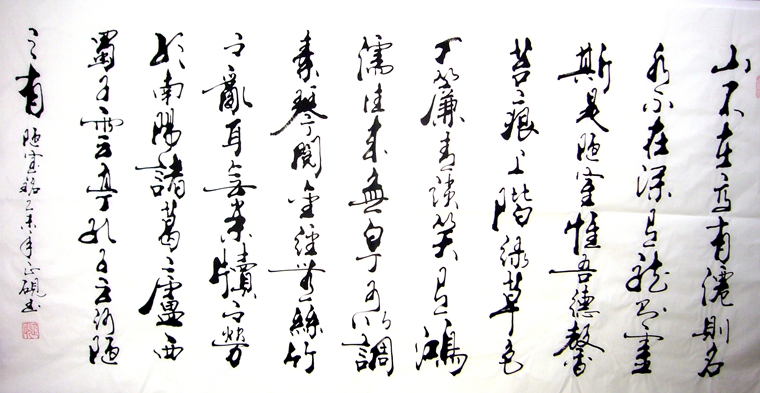 山不在高有僊則名
水不在深有龍則靈
斯是陋室惟吾德馨
苔痕上階綠草色
入簾青談笑有鴻
儒往来無白丁可以調
素琴閱金經無絲竹
之亂耳無案牘之勞
形南陽諸葛之廬西
蜀子雲亭孔子云何陋
之有
陋室銘乙未年正硯书